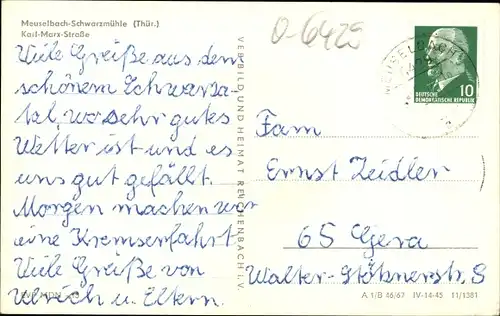 Meuselbach-Schwarzmühle (Thür.)
Karl-Marx-Straße
Viele Grüße aus dem
schönem Schwarza-
tal, wo sehr gutes
Wetter ist und es
uns gut gefällt.
Morgen machen wir
eine Kremserfahrt
Viele Grüße von
Ulrich u. Eltern.
VEB BILD UND HEIMAT REICHENBACH I. V.
0-6425
MEUSELBACH
10
DEUTSCHE
DEMOKRATISCHE REPUBLIK
Fam
Ernst Zeidler
65 Gera
Walter-Stötznerstr. 8
A 1/B 46/67 IV-14-45 11/1381